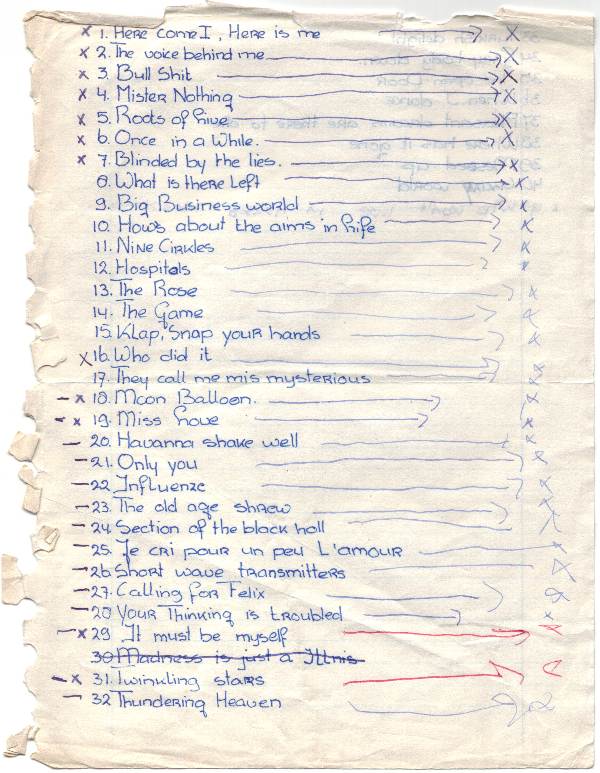 x 1. Here come I, Here is me x
x 2. The voice behind me x
x 3. Bull Shit x
x 4. Mister Nothing x
x 5. Roots of live x
x 6. Once in a While. x
x 7. Blinded by the lies. x
8. What is there left x
9. Big Business world x
10. Hows about the aims in life x
11. Nine Cirkles x
12. Hospitals x
13. The Rose x
14. The Game x
15. Klap, Snap your hands x
x 16. Who did it x
17. They call me mis mysterious x
- x 18. Moon Balloen. x
- x 19. Miss Love x
- 20. Havanna shake well x
- 21. Only you x
- 22. Influenze x
- 23. The old age shrew x
- 24. Section of the black hall
- 25. Je cri pour un peu L'amour x
- 26. Short wave transmitters x
- 27. Calling for Felix
- 28 Your Thinking is troubled x
- x 29 It must be myself x
30 Madness is just a Illnis
- x 31. Twinkling stars
- 32 Thundering Heaven